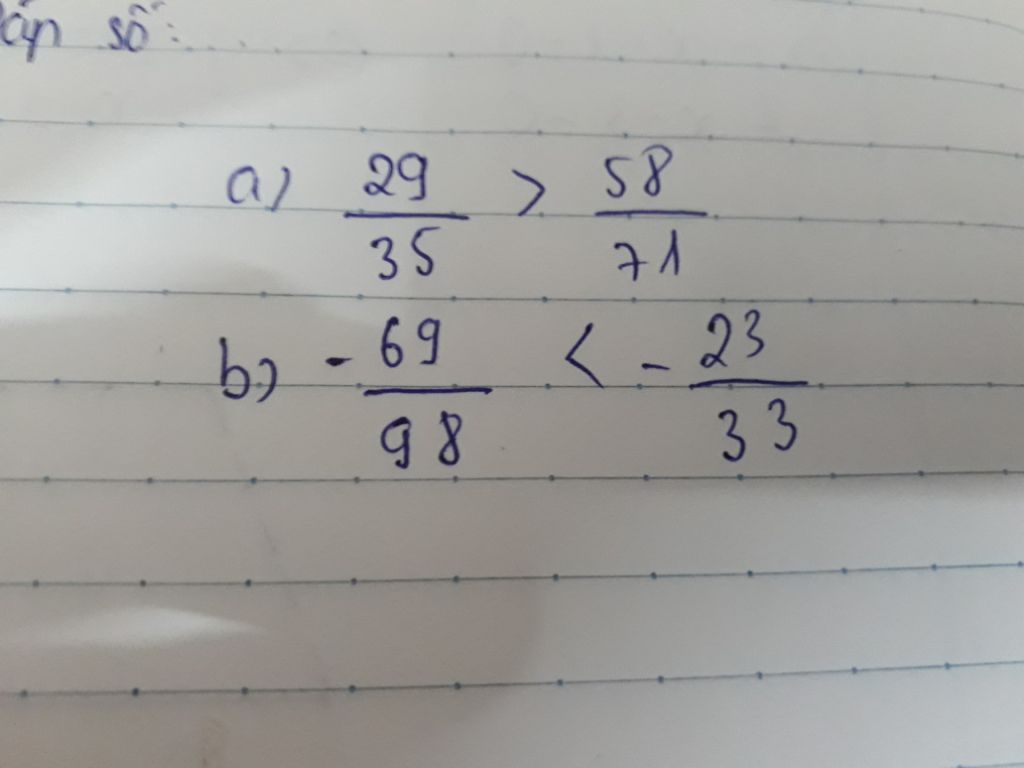 số:....
a) 29/35 > 58/71
b) - 69/98 < - 23/33